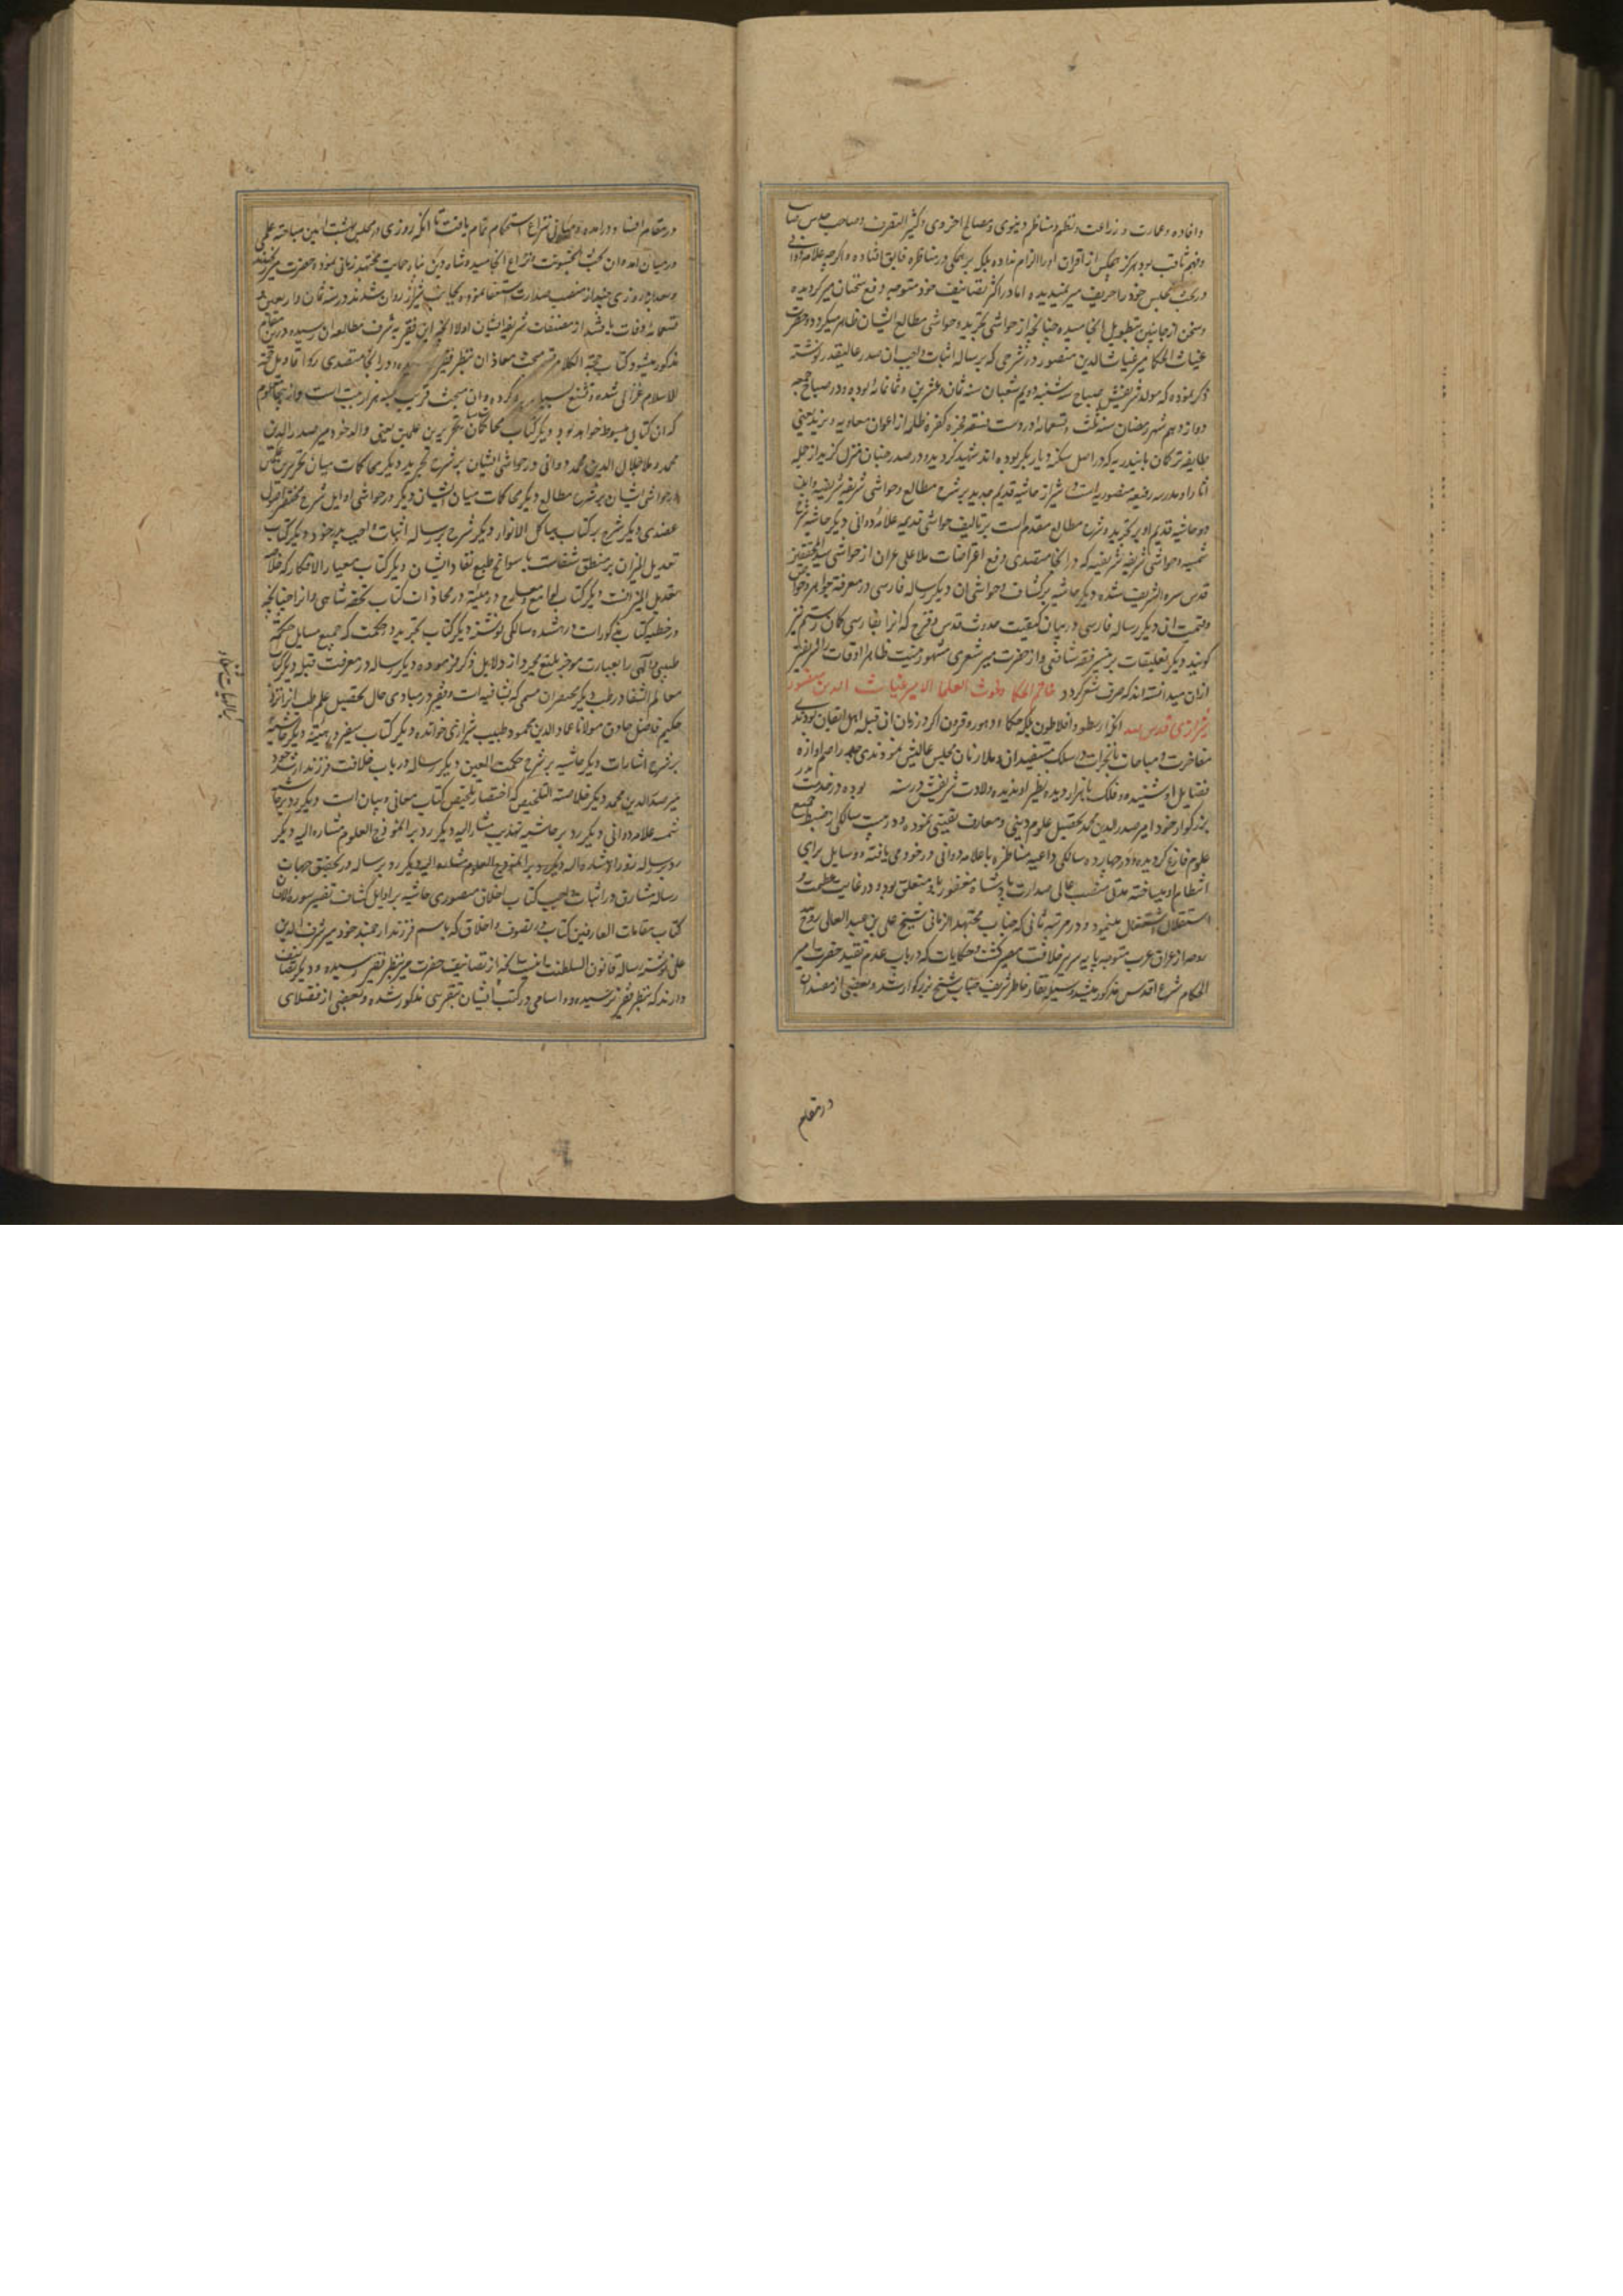 وافاده و عمارت و زراعت و نظم مناظم دنیوی و مصالح اخروی و کثیر التصرف و صاحب حدس صایب
و فهم ثاقب بود هرگز هیچکس از اقران او را الزام نداده بلکه بر همگی در مناظره فایق افتاده و اگرچه علامه دوانی
در بحث مجلس خود را حریف میر نمیدیده اما در اکثر تصانیف خود متوجه دفع سخنان میر گردیده
و سخن از جانبین بتطویل انجامیده چنانچه از حواشی تجرید و حواشی مطالع ایشان ظاهر میگردد و حضرت
غیاث الحکما میر غیاث الدین منصور در شرحی که بر رساله اثبات واجب ان صدر عالیقدر نوشته
ذکر نموده که مولد شریفش صباح سه شنبه دویم شعبان سنه ثمان و عشرین و ثمانمائه بوده و در صباح جمعه
دوازدهم شهر رمضان سنه ثلث و تسعمائه از دست فسقه فجره کفره ظلمه از اعوان معاویه و یزید یعنی
طایفه ترکان بایندریه که در اصل سکنه دیار بکر بوده اند شهید گردیده و در صدر جنان منزل گزید از جمله
اثار او مدرسه رفیعه منصوریه است در شیراز حاشیه قدیم و جدید بر شرح مطالع و حواشی شریفه شریفیه و این
دو حاشیه قدیم او بر تجرید و شرح مطالع مقدم است بر تالیف حواشی قدیمه علامه دوانی دیگر حاشیه شرح
شمسیه و حواشی شریفه شریفیه که در انجا متصدی دفع اعتراضات ملا علی عران از حواشی سید المحققین
قدس سره الشریف شده دیگر حاشیه بر کشاف و حواشی ان دیگر رساله فارسی در معرفة جواهر و خواص
و قیمت ان دیگر رساله فارسی در بیان کیفیت حدوث قوس قزح که انرا بفارسی کمان رستم نیز
گویند دیگر تعلیقات بر تیسیر فقه شافعی و از حضرت میر شعری مشهور نیست ظاهر اوقات را شریفتر
ازان میدانسته اند که صرف شعر گردد خاتم الحکما و غوث العلما الامیر غیاث الدین منصور
شیرازی قدس سره انکه ارسطو و افلاطون بلکه حکماء دهور و قرون اگر در زمان ان قبله اهل ایقان بودندی
مفاخرت و مباهات بانخراط در سلک مستفیدان و ملازمان مجلس عالیش نمودندی راصم اوازه
فضایل او شنیده و فلک باهزار دیده نظیر او ندیده ولادت شریفش در سنه بوده در خدمت پدر
بزرگوار خود امیر صدر الدین محمد تحصیل علوم دینی و معارف یقینی نموده و در بیست سالگی از ضبط جمیع
علوم فارغ گردیده و در چهارده سالگی داعیه مناظره با علامه دوانی در خود می یافته و وسایل برای
انتظام او میساخته مدتی منصب عالی صدارت پادشاه مغفور باو متعلق بود و در غایت عظمت و
استقلال اشتغال مینمود و در مرتبه ثانی که جناب مجتهد الزمانی شیخ علی بن عبد العالی روح
روحه از عراق عرب متوجه پایه سریر خلافت مصیر گشت و حکایات که در باب عدم تقید حضرت میر
احکام شرع اقدس مذکور میشد وسیله نقار خاطر شریف جناب شیخ بزرگوار شد و بعضی از مفسدان
در مقام
در مقام افساد درامده و مبانی نزاع استحکام تمام یافت تا انکه روزی در مجلس بهشت ایین مباحثه علمی
در میان امد و ان بحث بخشونت و نزاع انجامید و شاه دین پناه حمایت مجتهد زمانی نمود و حضرت میر
و بعد از روزی چند از منصب صدارت استعفا نموده بجانب شیراز روان شدند در سنه ثمان و اربعین و
تسعمائه وفات یافتند از مصنفات شریفه ایشان اولا انچه این فقیر به شرف مطالعه ان رسیده در این مقام
مذکور میشود کتاب حجة الکلام که مبحث معاد ان بنظر فقیر رسیده و در انجا متصدی رد اقاویل حجة
الاسلام غزالی شده و تشنیع بسیار برو کرده و ان مبحث قریب به سه هزار بیت است و از انجا معلوم
که ان کتابی مبسوط خواهد بود دیگر کتاب محاکمات تحریر بین علمین یعنی والد خود میر صدر الدین
محمد و ملا جلال الدین محمد دوانی در حواشی ایشان بر شرح تجرید دیگر محاکمات میان تحریرین
در حواشی ایشان بر شرح مطالع دیگر محاکمات میان ایشان دیگر در حواشی اوایل شرح مختصر اصول
عضدی دیگر شرح بر کتاب هیاکل الانوار دیگر شرح رساله اثبات واجب پدر خود دیگر کتاب
تعدیل المیزان بر منطق شفاست با سوانح طبع نقاد ایشان دیگر کتاب معیار الافکار که خلاصه
تعدیل المیزانست دیگر کتاب لوامع و معارج در هیئة در محاذات کتاب تحفه شاهی و از انچه
در خطبه کتاب مذکورات در هشده سالگی نوشته دیگر کتاب تجرید در حکمت که جمیع مسایل حکمة
طبیعی و الهی را بعبارت موجز بلیغ مجرد از دلایل ذکر فرموده دیگر رساله در معرفت قبله دیگر کتاب
معالم الشفا در طب دیگر مختصر ان مسمی که بشافیه است و فقیر در مبادی حال تحصیل علم طب انرا نزد
حکیم فاضل حاذق مولانا عماد الدین محمود طبیب شیرازی خوانده دیگر کتاب سفیر در هیئة دیگر حاشیه
بر شرح اشارات دیگر حاشیه بر شرح حکمت العین دیگر رساله در باب خلافت فرزند ارشد خود
میر صدر الدین محمد دیگر خلاصة التلخیص که اختصار تلخیص کتاب معانی و بیان است دیگر رد بر حاشیه
شمسیه علامه دوانی دیگر رد بر حاشیه تهذیب مشار الیه دیگر رد بر انموذج العلوم مشار الیه دیگر
رد رساله زوراء مشار الیه دیگر رد بر انموذج العلوم مشار الیه دیگر رد بر رساله در تحقیق جهات
رساله مشارق در اثبات واجب کتاب اخلاق منصوری حاشیه بر اوایل کشاف تفسیر سوره هل اتی
کتاب مقامات العارفین کتاب در تصوف و اخلاق که باسم فرزند ارجمند خود میر شرف الدین
علی نوشته رساله قانون السلطنت اینست انچه از تصانیف حضرت میر بنظر فقیر رسیده و دیگر تصانیف
دارند که بنظر فقیر نرسیده و اسامی در کتب ایشان بتقریبی مذکور شده و بعضی از فضلای